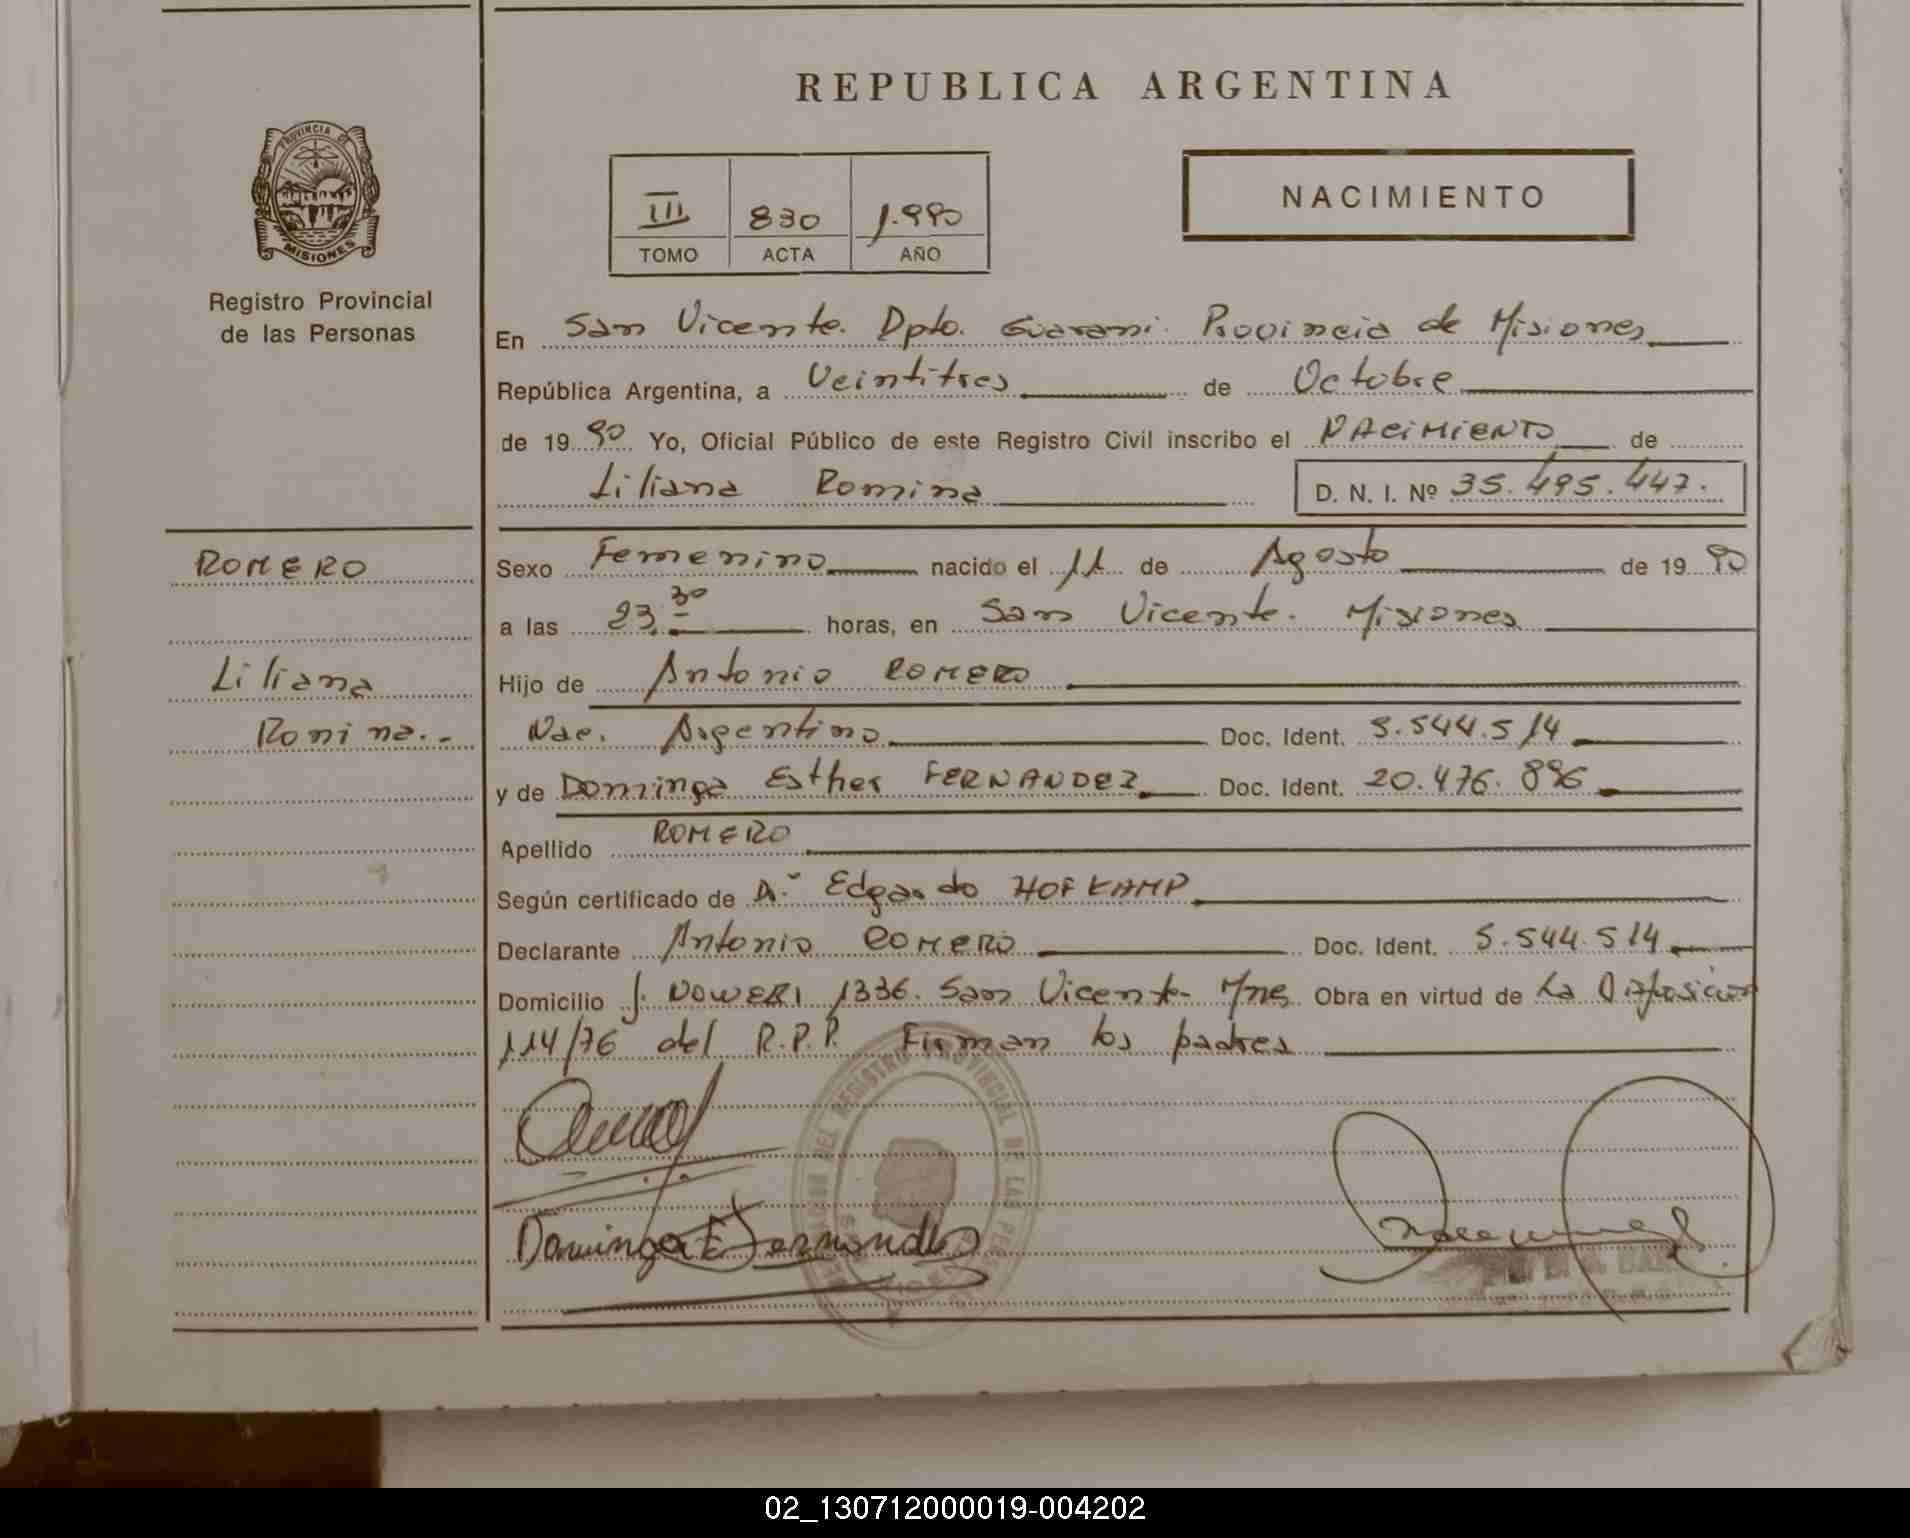 REPUBLICA ARGENTINA
PROVINCIA DE
MISIONES
Registro Provincial
de las Personas
III 830 1.990
TOMO ACTA AÑO
NACIMIENTO
En San Vicente. Dpto. Guarani. Provincia de Misiones
República Argentina, a Veintitres de Octubre
de 1990 Yo, Oficial Público de este Registro Civil inscribo el NACIMIENTO de
Liliana Romina D. N. I. Nº 35.495.447.
ROMERO
Liliana
Romina.-
Sexo Femenino nacido el 11 de Agosto de 1990
a las 23.30 horas, en San Vicente. Misiones
Hijo de Antonio ROMERO
Nac. Argentino Doc. Ident. 5.544.514
y de Dominga Esther FERNANDEZ Doc. Ident. 20.476.896
Apellido ROMERO
Según certificado de Dr. Edgardo HOFKAMP
Declarante Antonio ROMERO Doc. Ident. 5.544.514
Domicilio J. NOWERI 1336. San Vicente- Mnes Obra en virtud de La Disposicion
114/76 del R.P.P. Firman los padres
DEL REGISTRO PROVINCIAL DE LAS
Dominga E Fernandez
02_130712000019-004202